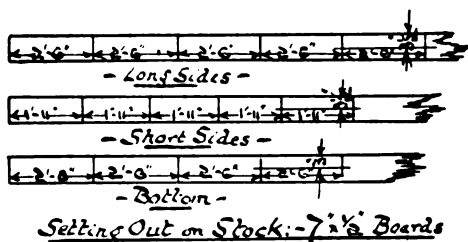 2'-6" 2'-6" 2'-6" 2'-6"
- Long Sides -
1'-11" 1'-11" 1'-11" 1'-11" 1'-11"
- Short Sides -
2'-8" 2'-8" 2'-6" 2'-6"
- Bottom -
Setting Out on Stock:- 7" x ½" Boards